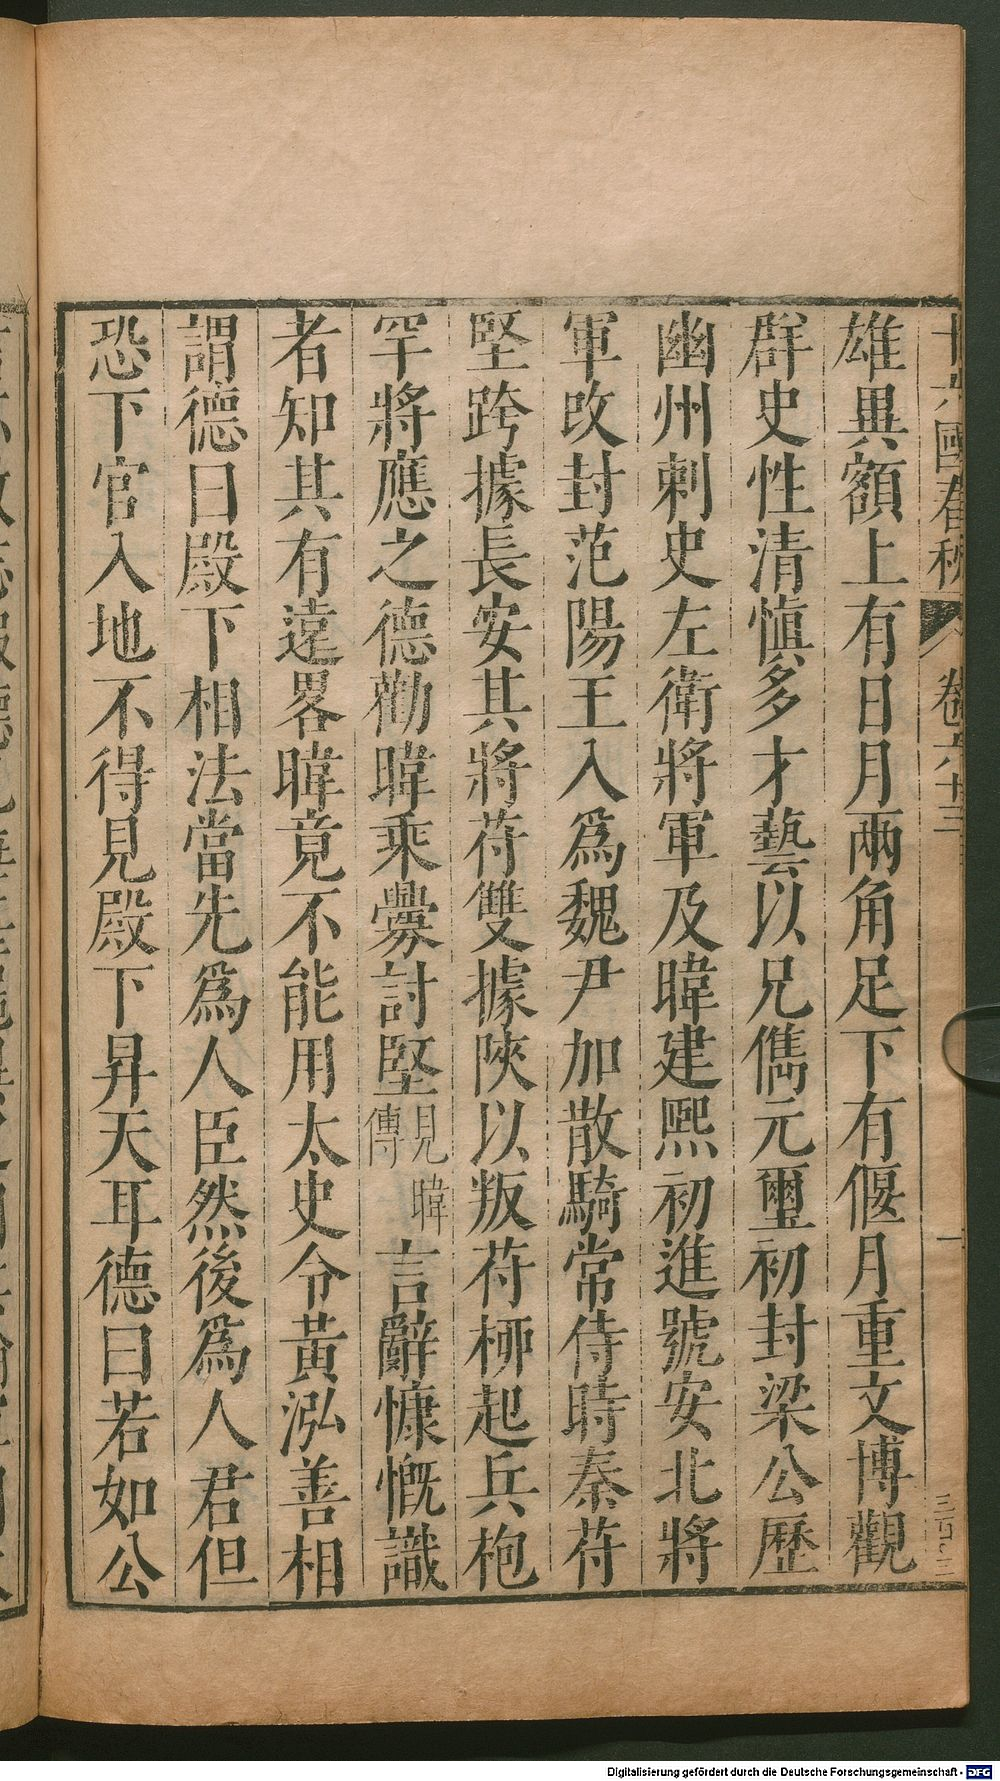 十六國春秋 卷六十三 一
雄異額上有日月兩角足下有偃月重文博觀
群史性清愼多才藝以兄儁元璽初封梁公歷
幽州刺史左衛將軍及暐建熙初進號安北將
軍改封范陽王入爲魏尹加散騎常侍時秦苻
堅跨據長安其將苻雙據陝以叛苻桺起兵枹
罕將應之德勸暐乘釁討堅見暐傳言辭慷慨識
者知其有遠畧暐竟不能用太史令黃泓善相
謂德曰殿下相法當先爲人臣然後爲人君但
恐下官入地不得見殿下昇天耳德曰若如公
Digitalisierung gefördert durch die Deutsche Forschungsgemeinschaft - DFG